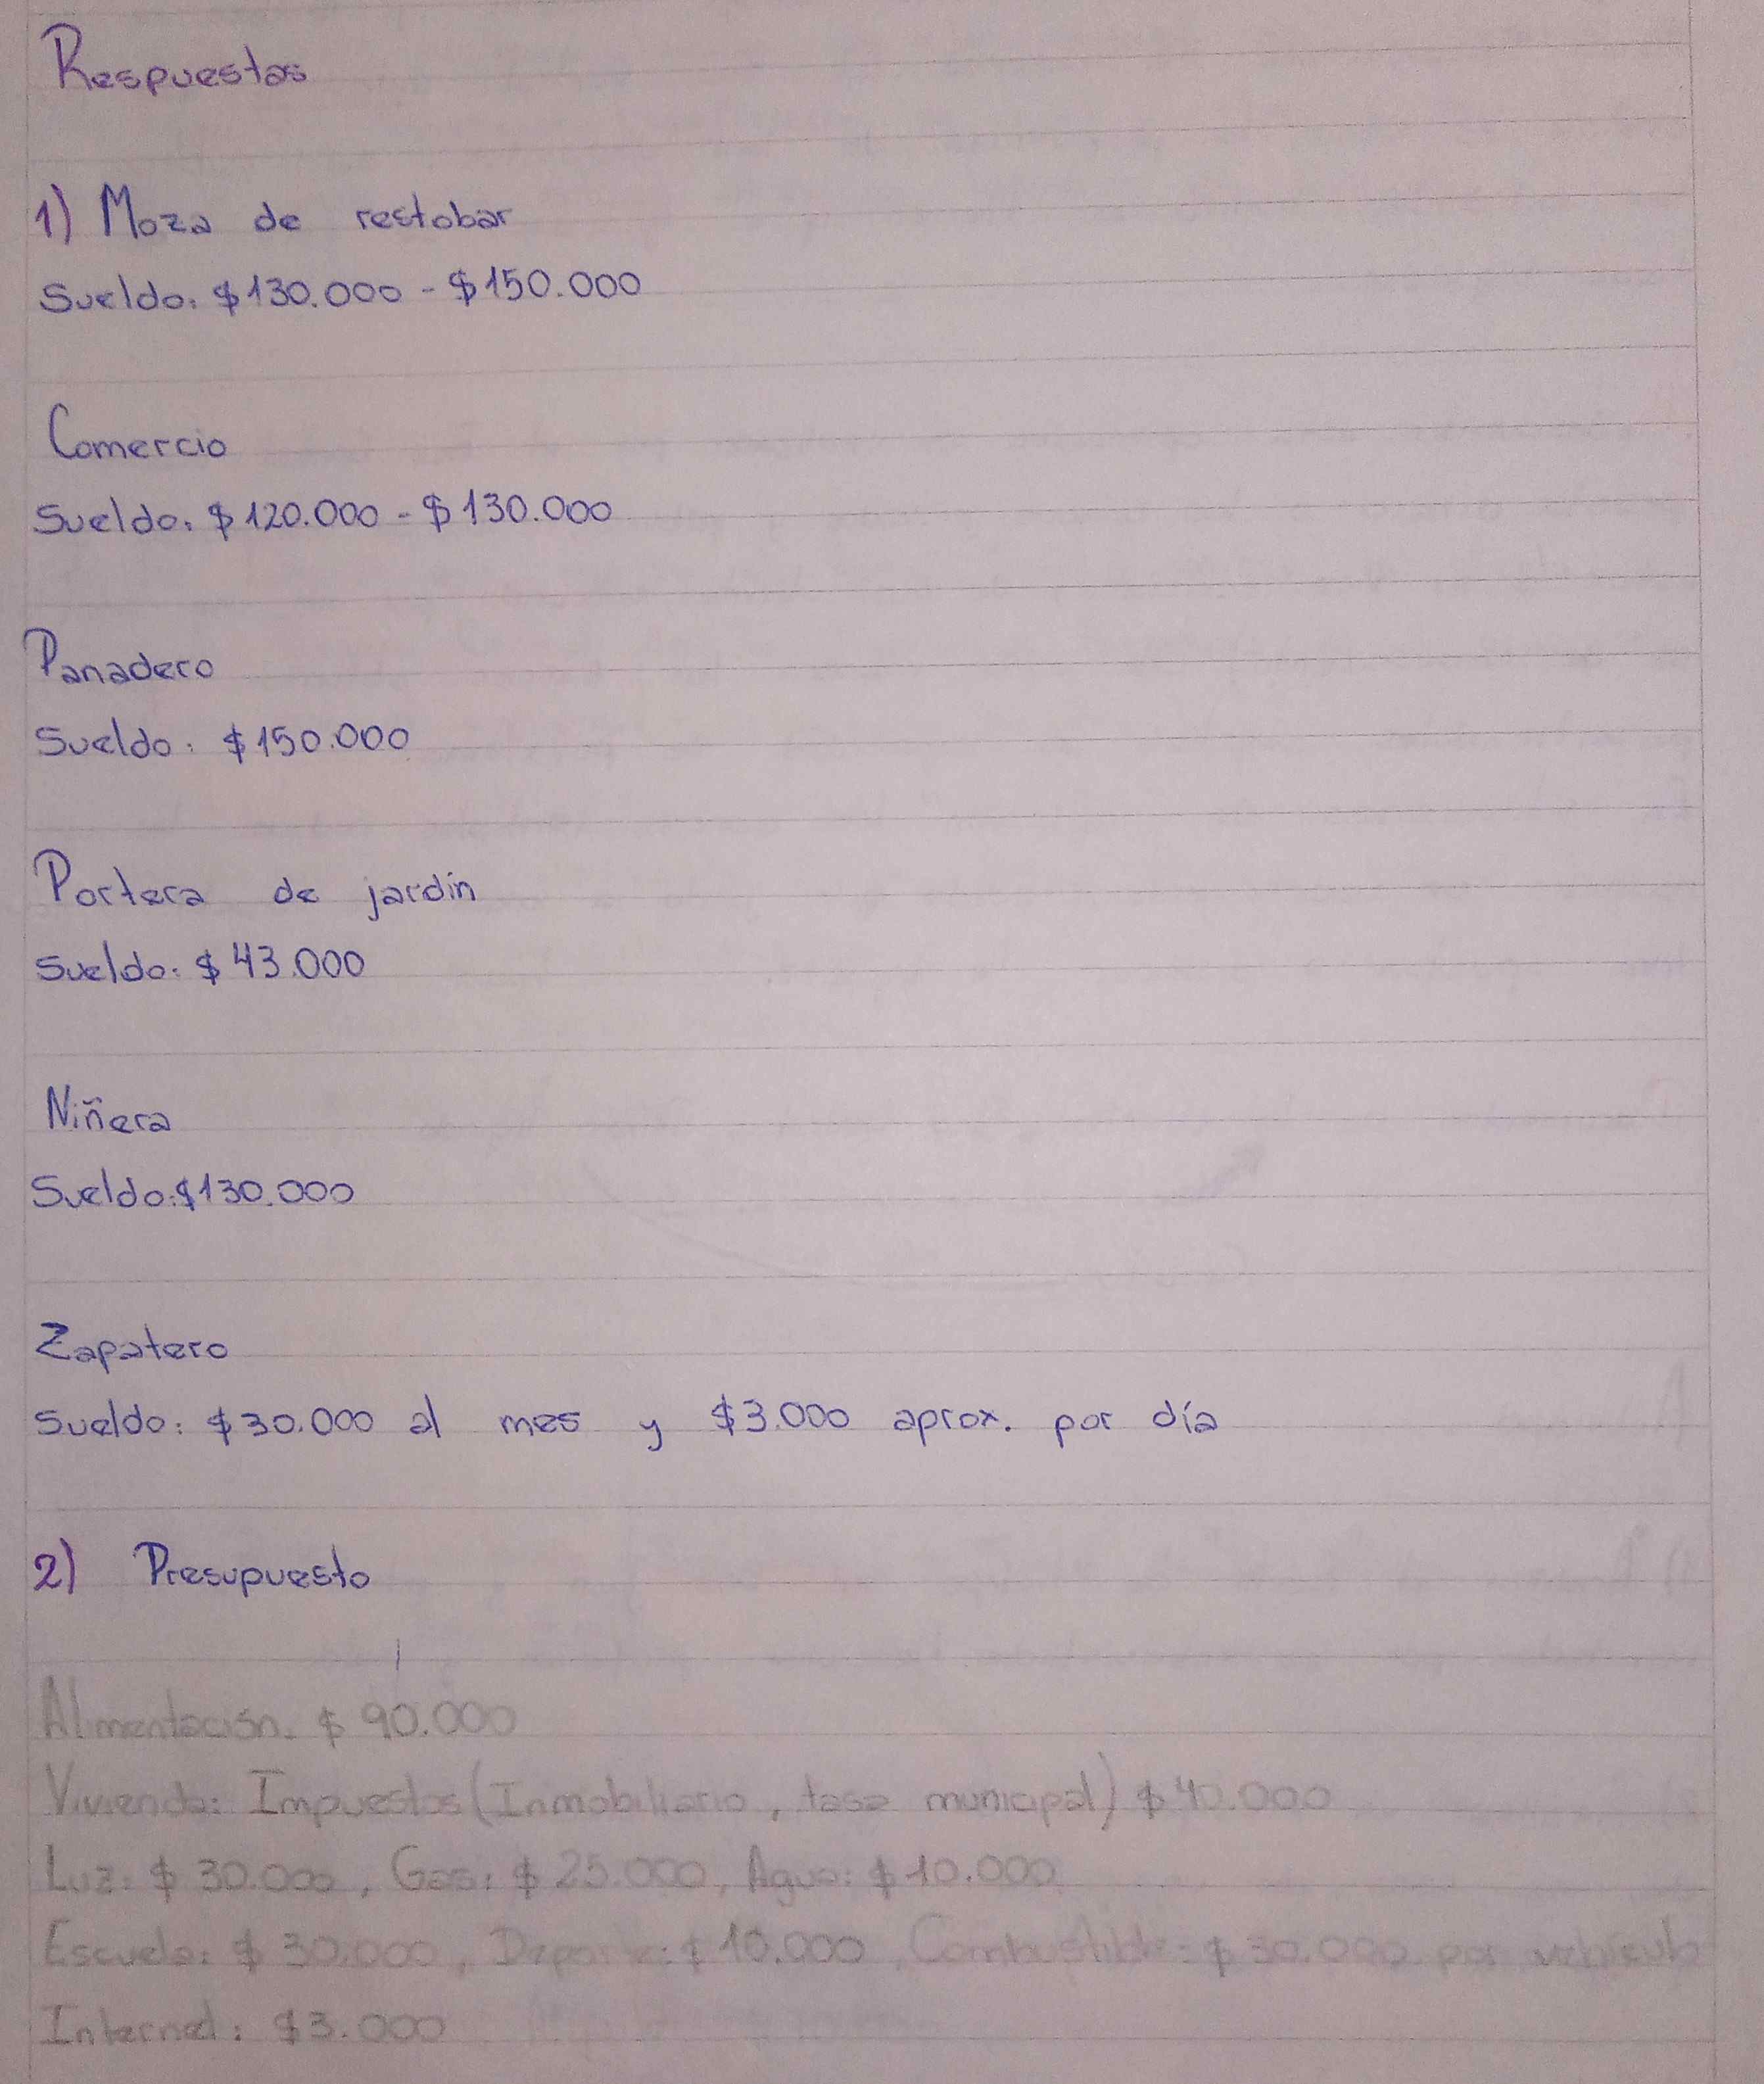 Respuestas
1) Moza de restobar
Sueldo: $130.000 - $150.000
Comercio
Sueldo: $120.000 - $130.000
Panadero
Sueldo: $150.000
Portera de jardín
Sueldo: $43.000
Niñera
Sueldo: $130.000
Zapatero
Sueldo: $30.000 al mes y $3.000 aprox. por día
2) Presupuesto
Alimentación. $ 90.000
Vivienda: Impuestos (Inmobiliario, tasa municipal) $ 40.000
Luz: $ 30.000, Gas: $ 25.000, Agua: $ 10.000
Escuela: $ 30.000, Deporte: $ 10.000, Combustible: $ 30.000 por vehículo
Internet: $3.000